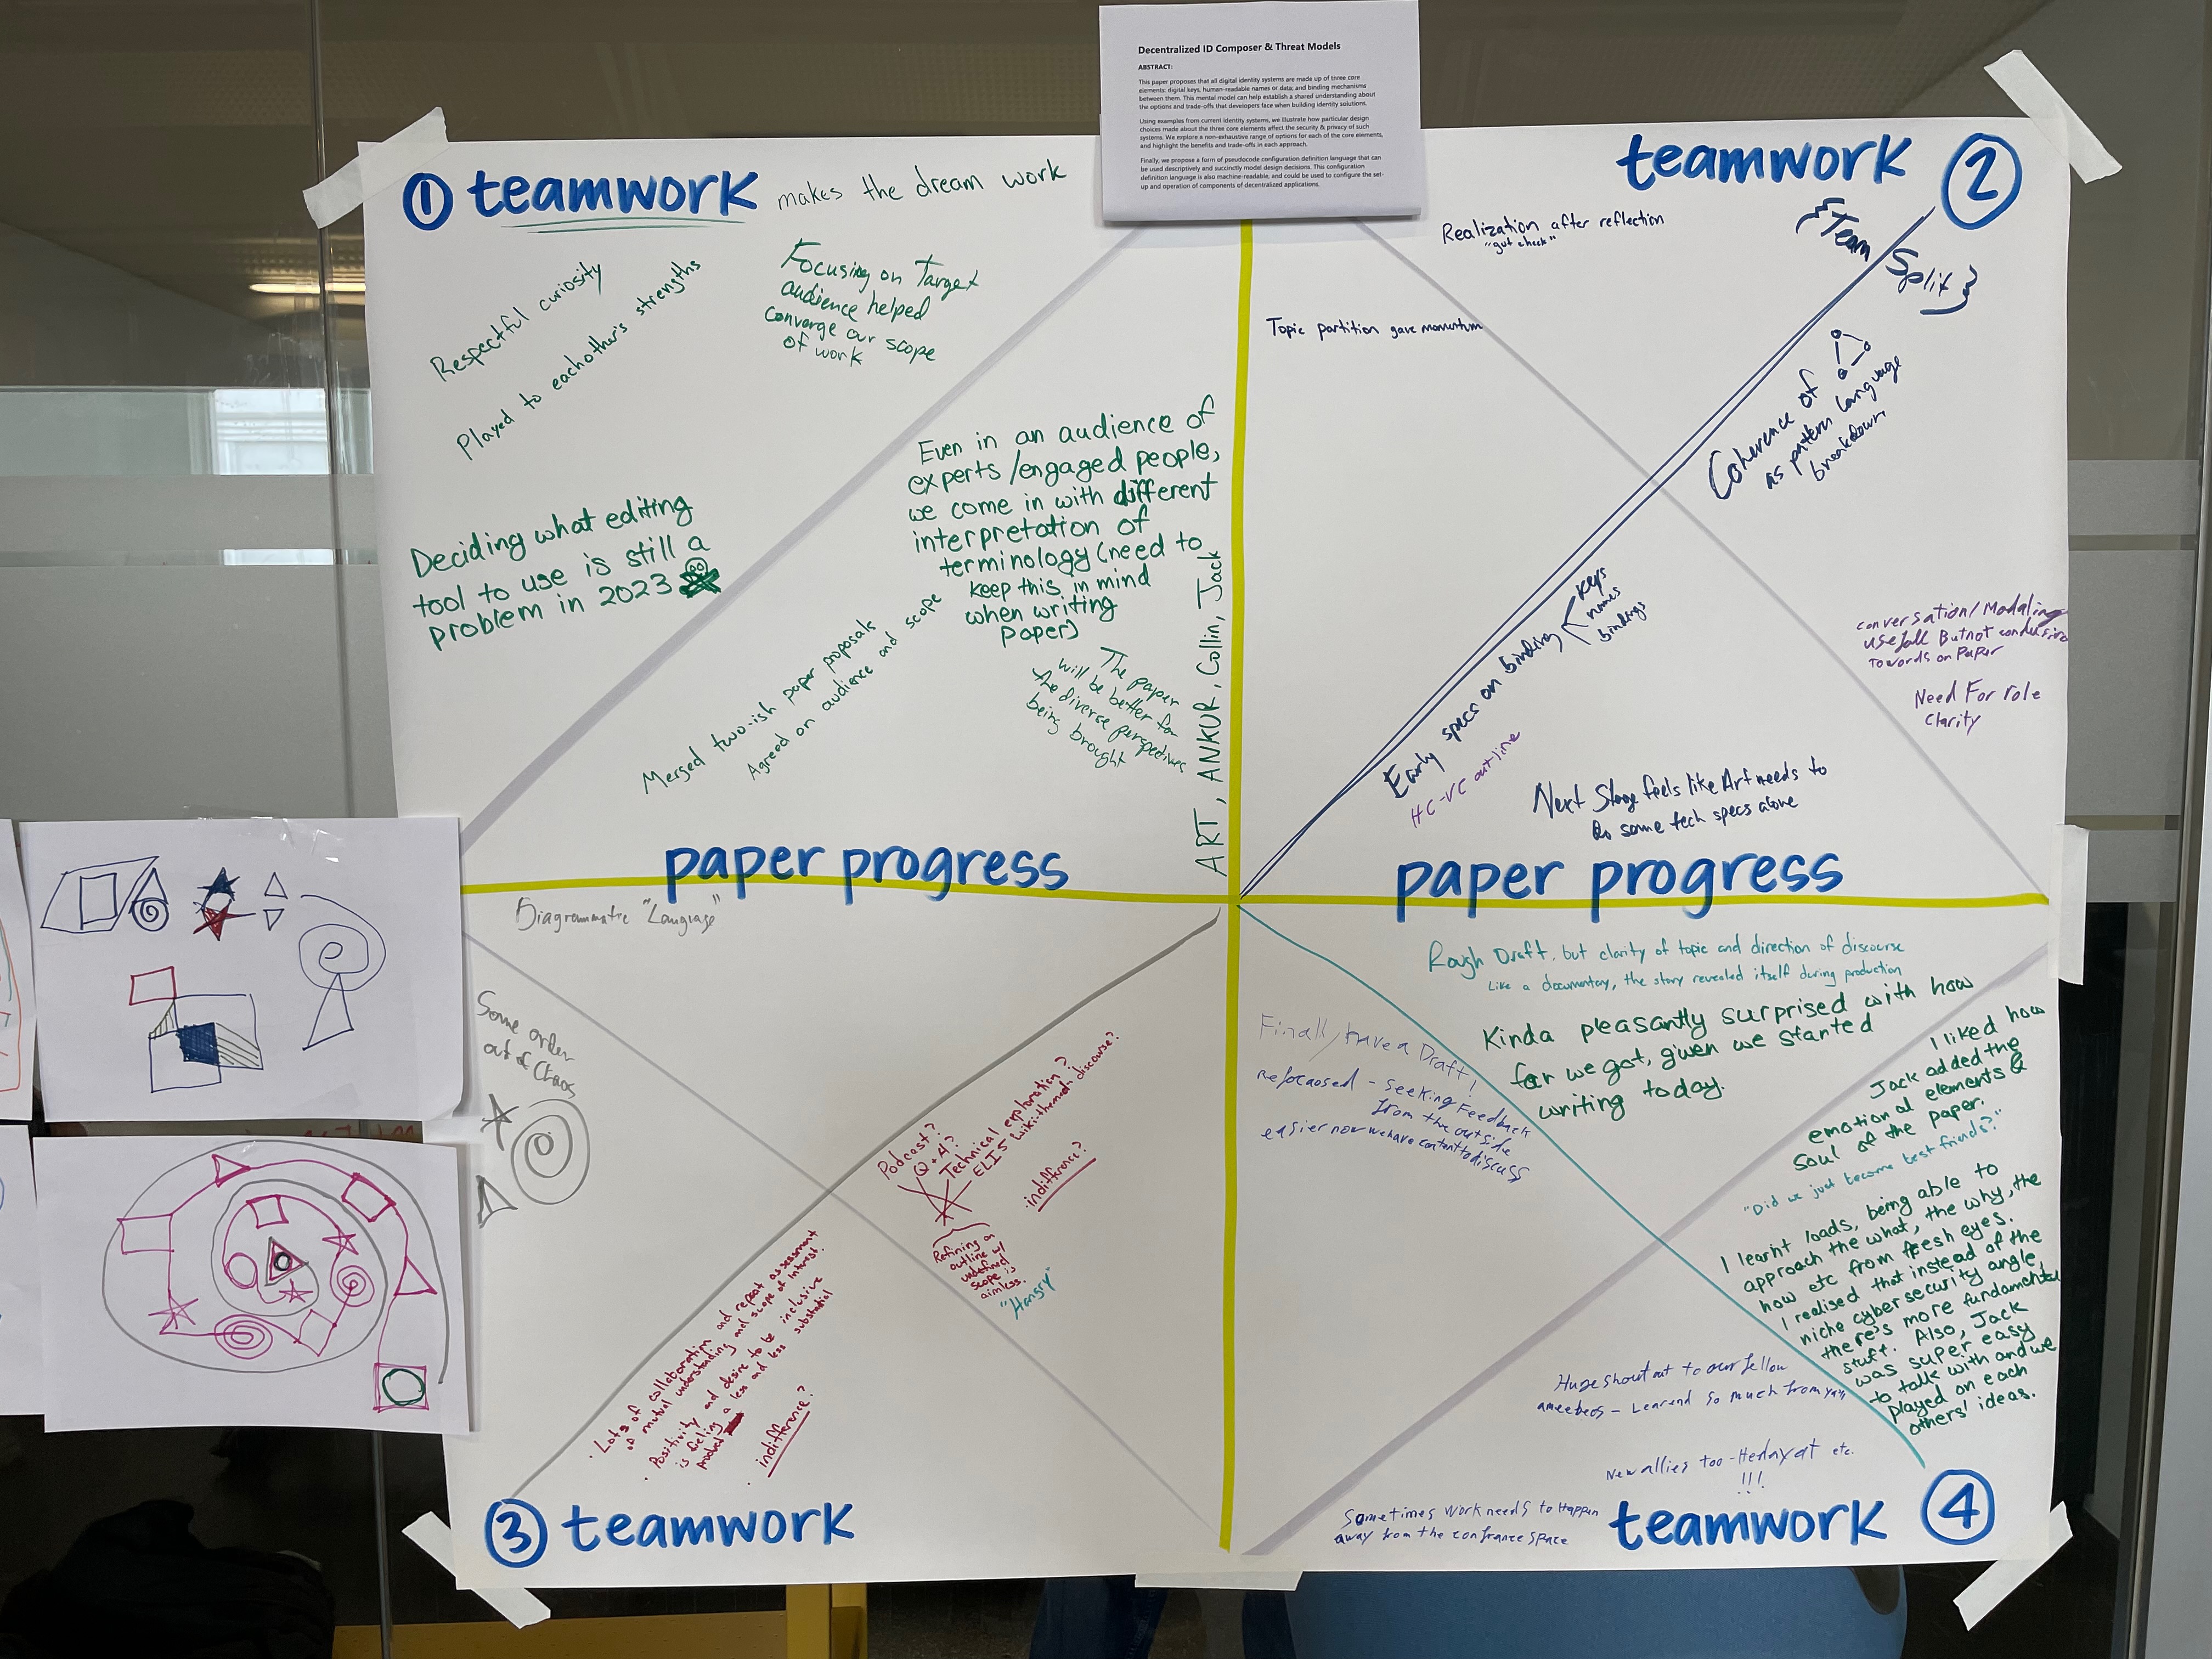 Decentralized ID Composer & Threat Models
ABSTRACT:
This paper proposes that all digital identity systems are made up of three core
elements: digital keys, human-readable names or data; and binding mechanisms
between them. This mental model can help establish a shared understanding about
the options and trade-offs that developers face when building identity solutions.
Using examples from current identity systems, we illustrate how particular design
choices made about the three core elements affect the security & privacy of such
systems. We explore a non-exhaustive range of options for each of the core elements,
and highlight the benefits and trade-offs in each approach.
Finally, we propose a form of pseudocode configuration definition language that can
be used descriptively and succinctly model design decisions. This configuration
definition language is also machine-readable, and could be used to configure the set-
up and operation of components of decentralized applications.
1 teamwork makes the dream work
Respectful curiosity
Played to eachother's strengths
Focusing on Target
audience helped
Converge our scope
of work
Deciding what editing
tool to use is still a
problem in 2023
Even in an audience of
experts/engaged people,
we come in with different
interpretation of
terminology (need to
keep this in mind
when writing
paper)
Merged two-ish paper proposals
Agreed on audience and scope
The paper
will be better for
the diverse perspectives
being brought
ART, ANKUR, Collin, Jack
paper progress
teamwork 2
Realization after reflection
"gut check"
{Team
Split}
Topic partition gave momentum
Coherence of
as pattern language
breakdown
Early specs on binding
keys
names
bindings
HC-VC outline
conversation/Modaling
usefull But not
Towards on Paper
Need For role
Clarity
Next Stage feels like Art needs to
do some tech specs alone
paper progress
Diagrammatic "Language"
Some order
out of Chaos
Podcast?
Q+A?
Technical exploration?
ELI5 wiki-themed discourse?
indifference?
Refining an
outline w/
undefined
scope is
aimless.
"Hangry"
· Lots of collaboration and repeat assessment
of mutual understanding and scope of interest.
· Positivity and desire to be inclusive
is feeling a less and less substantial
· indifference?
3 teamwork
Rough Draft, but clarity of topic and direction of discourse
Like a documentary, the story revealed itself during production
Finally have a Draft!
refocaosed - seeking Feedback
from the outside
easier now we have content to discuss
Kinda pleasantly surprised with how
far we got, given we started
writing today.
I liked how
Jack added the
emotional elements &
soul of the paper.
"Did we just become best friends?"
I learnt loads, being able to
approach the what, the why, the
how etc from fresh eyes.
I realised that instead of the
niche cybersecurity angle,
there's more fundamental
stuff. Also, Jack
was super easy
to talk with and we
played on each
others' ideas.
Huge shout out to our fellow
- Learend so much from
New allies too - Hedayat etc.
!!!
Sometimes work needs to Happen
away from the confrance space
teamwork 4